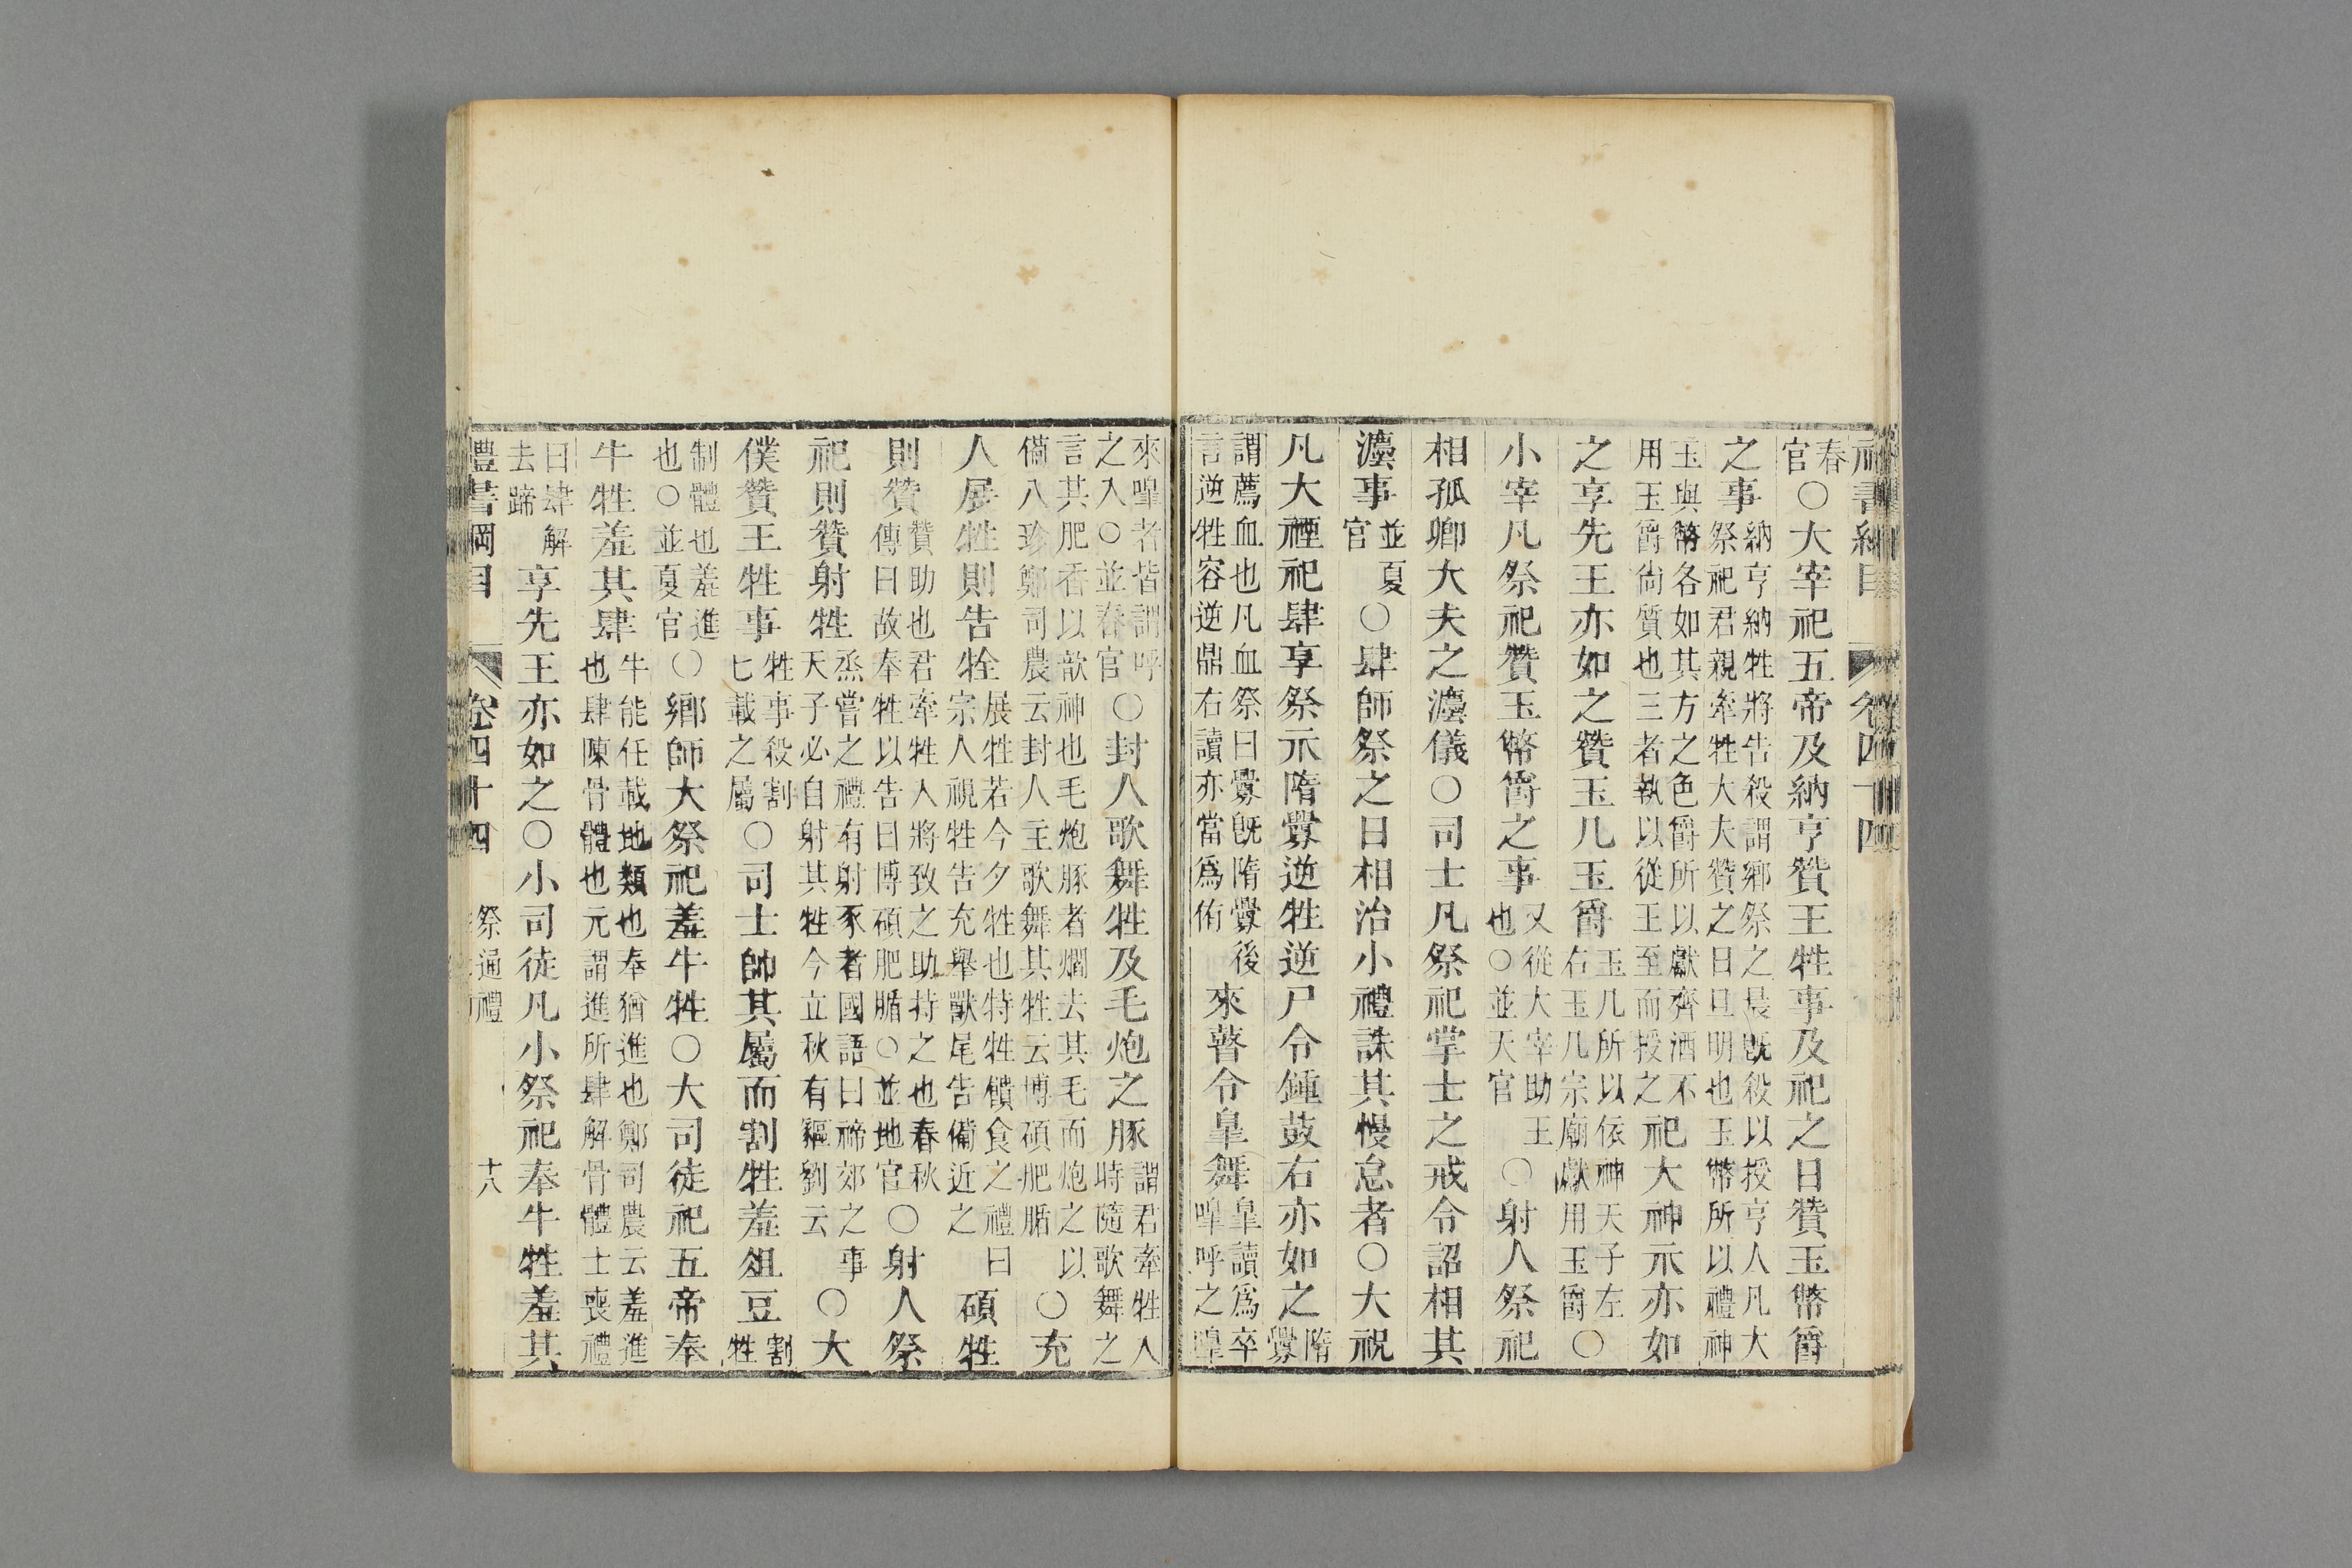 禮書綱目 卷四十四
春官○大宰祀五帝及納亨贊王牲事及祀之日贊玉幣爵
之事納亨納牲將告殺謂鄉祭之晨既殺以授亨人凡大祭祀君親牽牲大夫贊之日旦明也玉幣所以禮神
玉與幣各如其方之色爵所以獻齊酒不用玉爵尚質也三者執以從王至而授之祀大神示亦如
之享先王亦如之贊玉几玉爵玉几所以依神天子左右玉几宗廟獻用玉爵○
小宰凡祭祀贊玉幣爵之事又從大宰助王也○並天官○射人祭祀
相孤卿大夫之灋儀○司士凡祭祀掌士之戒令詔相其
灋事並夏官○肆師祭之日相治小禮誅其慢怠者○大祝
凡大禋祀肆享祭示隋釁逆牲逆尸令鍾鼓右亦如之隋釁
謂薦血也凡血祭曰釁既隋釁後言逆牲容逆鼎右讀亦當爲侑來瞽令皐舞皐讀爲卒嘷呼之嘷
來嘷者皆謂呼之入○並春官○封人歌舞牲及毛炮之豚謂君牽牲入時隨歌舞之
言其肥香以歆神也毛炮豚者爓去其毛而炮之以備八珍鄭司農云封人主歌舞其牲云博碩肥腯○充
人展牲則告牷展牲若今夕牲也特牲饋食之禮曰宗人視牲告充舉獸尾告備近之碩牲
則贊贊助也君牽牲入將致之助持之也春秋傳曰故奉牲以告曰博碩肥腯○並地官○射人祭
祀則贊射牲烝嘗之禮有射豕者國語曰禘郊之事天子必自射其牲今立秋有貙劉云○大
僕贊王牲事牲事殺割匕載之屬○司士帥其屬而割牲羞俎豆割牲
制體也羞進也○並夏官○鄉師大祭祀羞牛牲○大司徒祀五帝奉
牛牲羞其肆牛能任載地類也奉猶進也鄭司農云羞進也肆陳骨體也元謂進所肆解骨體士喪禮
曰肆解去蹄享先王亦如之○小司徒凡小祭祀奉牛牲羞其
禮書綱目 卷四十四 祭通禮 十八